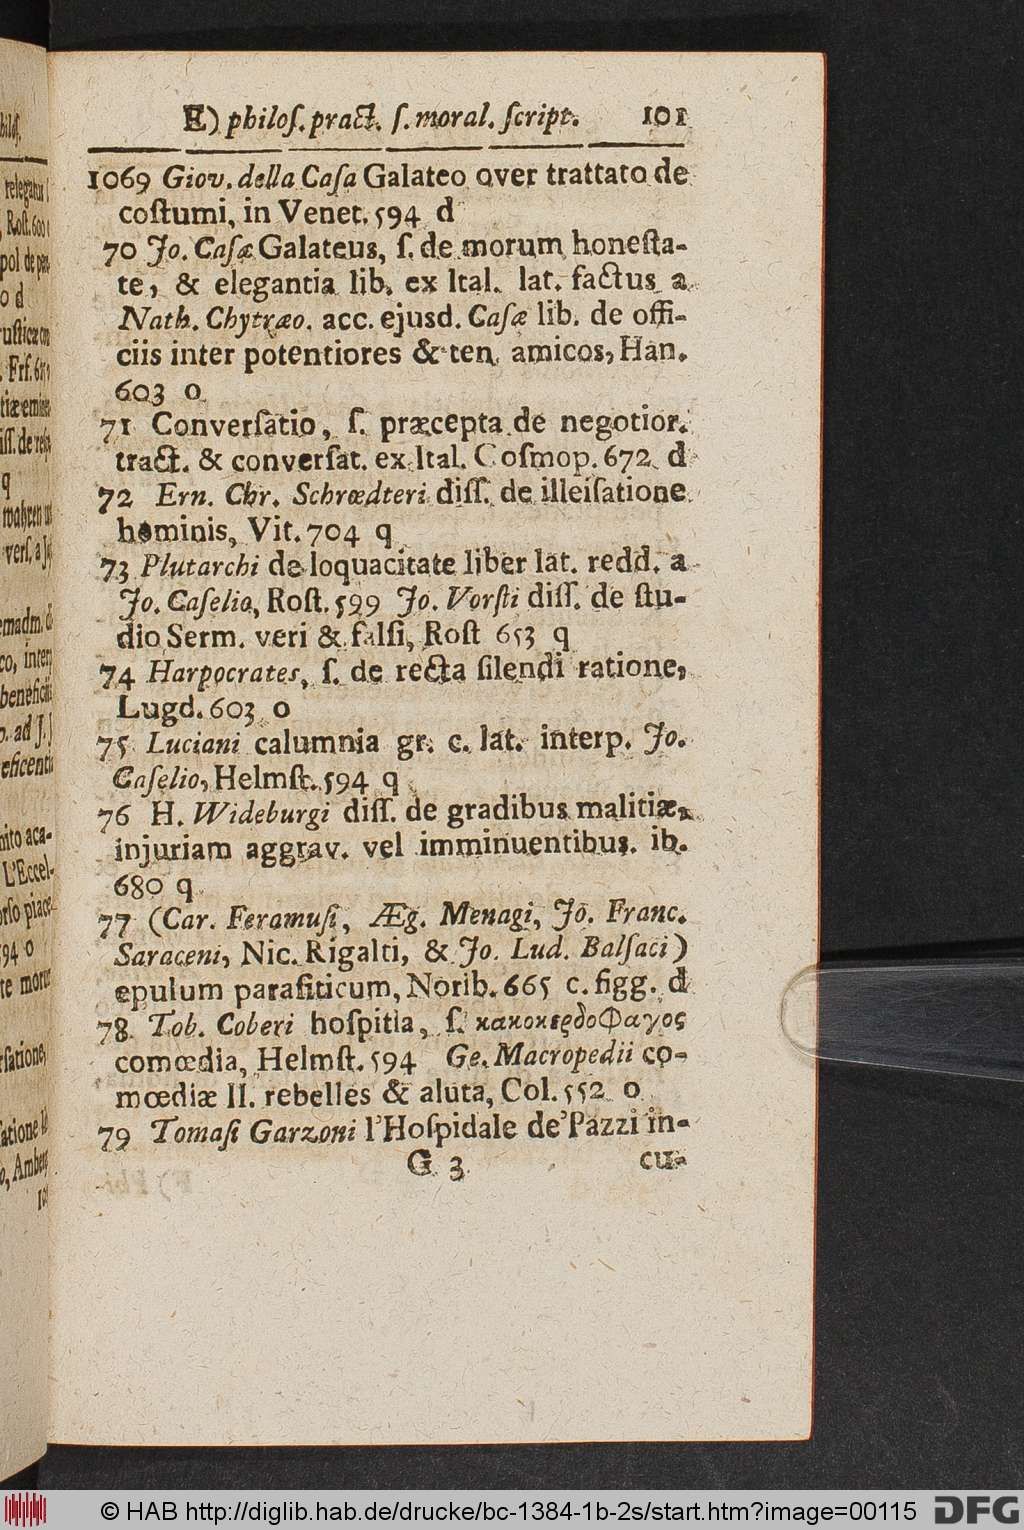 E) philoſ. pract. ſ. moral. ſcript. 101
1069 Giov. della Caſa Galateo over trattato de
coſtumi, in Venet. 594 d
70 Jo. Caſæ Galateus, ſ. de morum honeſta-
te, & elegantia lib. ex Ital. lat. factus a
Nath. Chytræo. acc. ejusd. Caſæ lib. de offi-
ciis inter potentiores & ten. amicos, Han.
603 o
71 Converſatio, ſ. præcepta de negotior.
tract. & converſat. ex Ital. Coſmop. 672 d
72 Ern. Chr. Schrœdteri diſſ. de illeiſatione
hominis, Vit. 704 q
73 Plutarchi de loquacitate liber lat. redd. a
Jo. Caſelio, Roſt. 599 Jo. Vorſti diſſ. de ſtu-
dio Serm. veri & falſi, Roſt 653 q
74 Harpocrates, ſ. de recta ſilendi ratione,
Lugd. 603 o
75 Luciani calumnia gr. c. lat. interp. Jo.
Caſelio, Helmſt. 594 q
76 H. Wideburgi diſſ. de gradibus malitiæ,
injuriam aggrav. vel imminuentibus. ib.
680 q
77 (Car. Feramuſi, Æg. Menagi, Jo. Franc.
Saraceni, Nic. Rigalti, & Jo. Lud. Balſaci)
epulum paraſiticum, Norib. 665 c. figg. d
78 Tob. Coberi hoſpitia, ſ. κακοκερδοφαγος
comœdia, Helmſt. 594 Ge. Macropedii co-
mœdiæ II. rebelles & aluta, Col. 552 o
79 Tomaſi Garzoni l'Hoſpidale de'Pazzi in-
G 3 cu-
© HAB http://diglib.hab.de/drucke/bc-1384-1b-2s/start.htm?image=00115 DFG